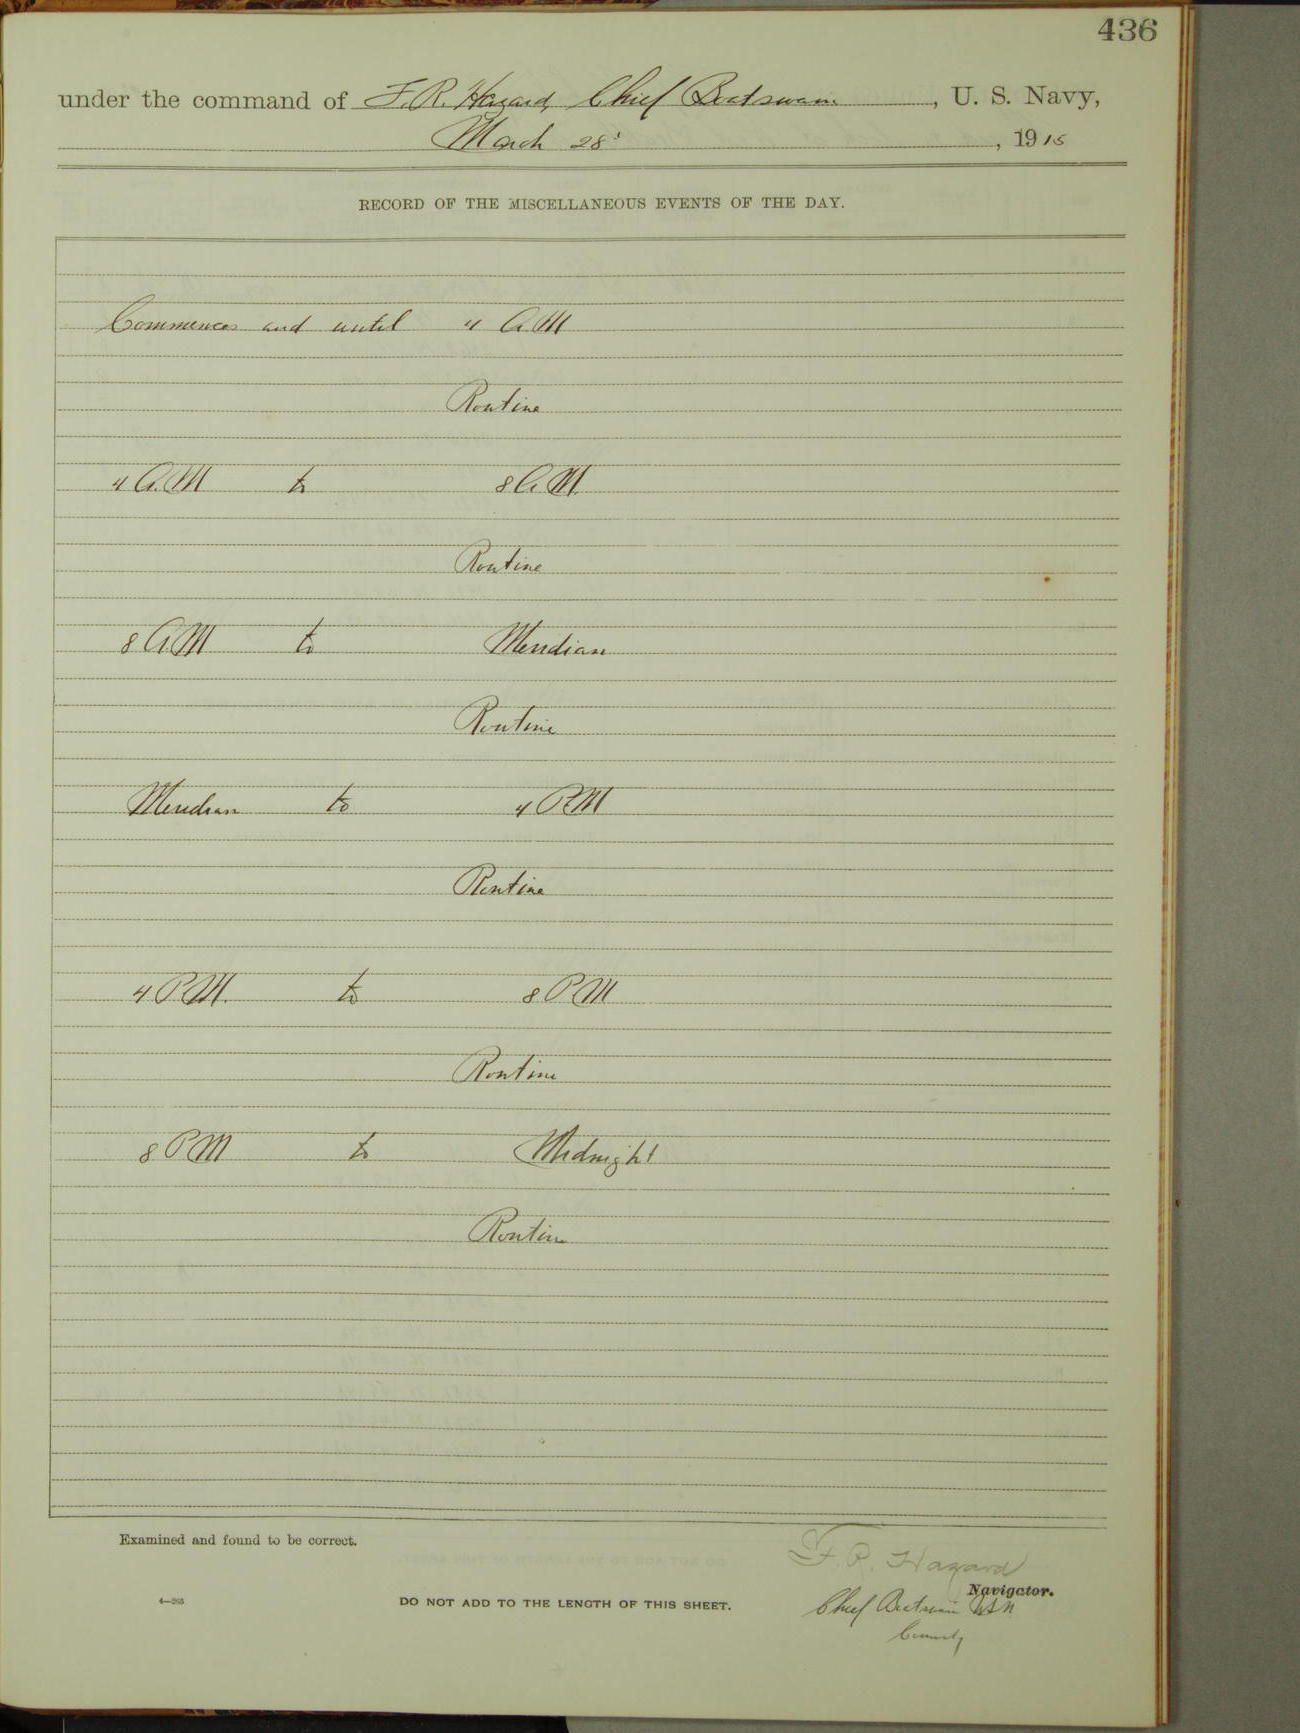 436
under the command of F. R. Hazard, Chief Boatswain, U. S. Navy,
March 28', 1915
RECORD OF THE MISCELLANEOUS EVENTS OF THE DAY.
Commences and until 4 A.M
Routine
4 A.M to 8 A.M.
Routine
8 A.M to Meridian
Routine
Meridian to 4 P.M
Routine
4 P.M. to 8 P.M
Routine
8 P.M to Midnight
Routine
Examined and found to be correct.
F. R. Hazard
Navigator.
4—265
DO NOT ADD TO THE LENGTH OF THIS SHEET.
Chief Boatswain USN
Comdg